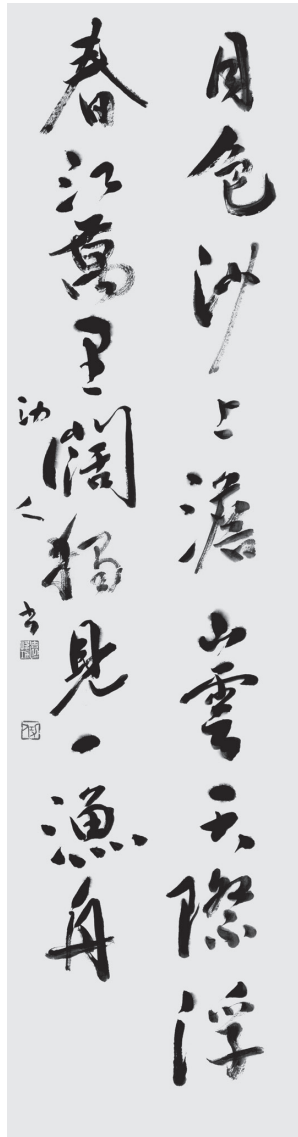 月色沙上澹山雲天際浮
春江萬里闊獨見一漁舟